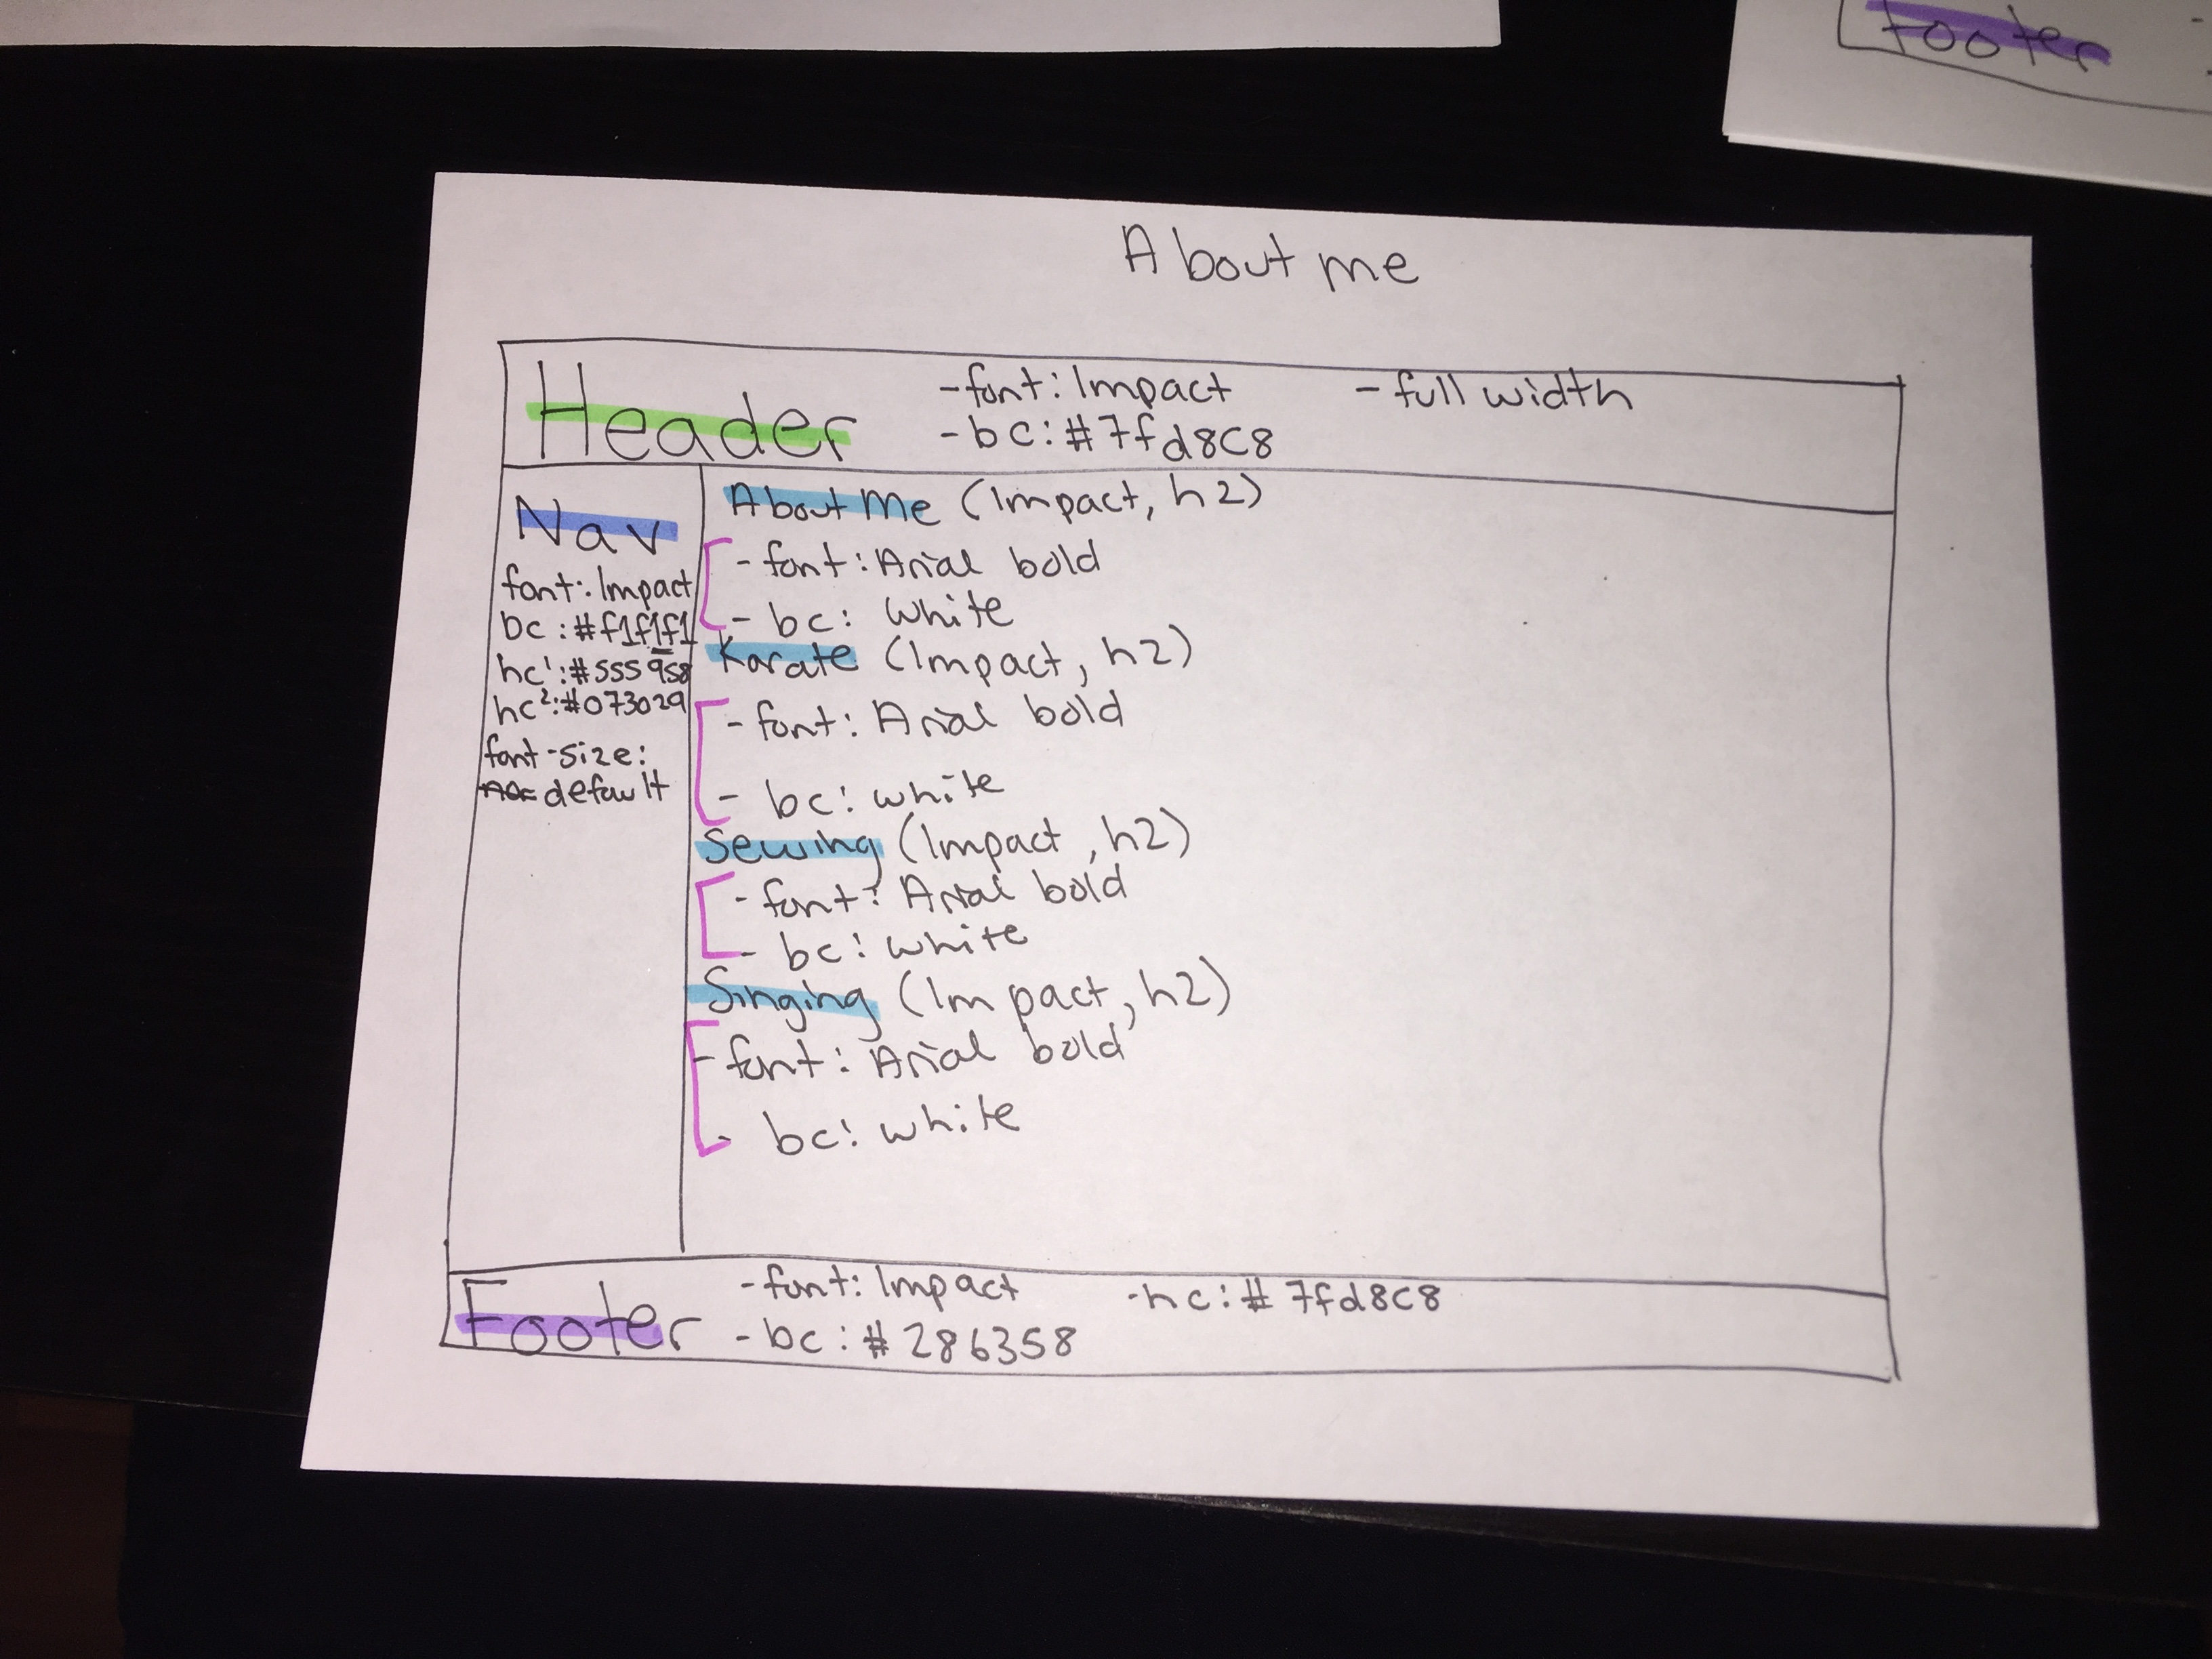 Footer
About me
Header
-font: Impact
-full width
-bc: #7fd8c8
Nav
font: Impact
bc: #f1f1f1
hc1: #555958
hc2: #073029
font-size:
default
About Me (Impact, h2)
-font: Arial bold
- bc: white
Karate (Impact, h2)
-font: Arial bold
- bc: white
Sewing (Impact, h2)
-font: Arial bold
- bc: white
Singing (Impact, h2)
-font: Arial bold
- bc: white
Footer
-font: Impact
-hc: #7fd8c8
-bc: #286358